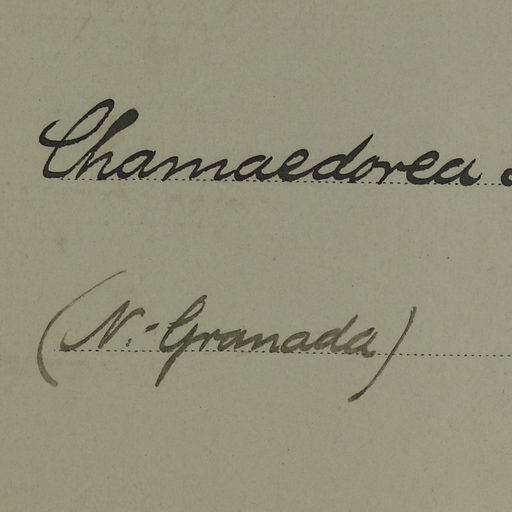 Chamaedorea
(N.-Granada)